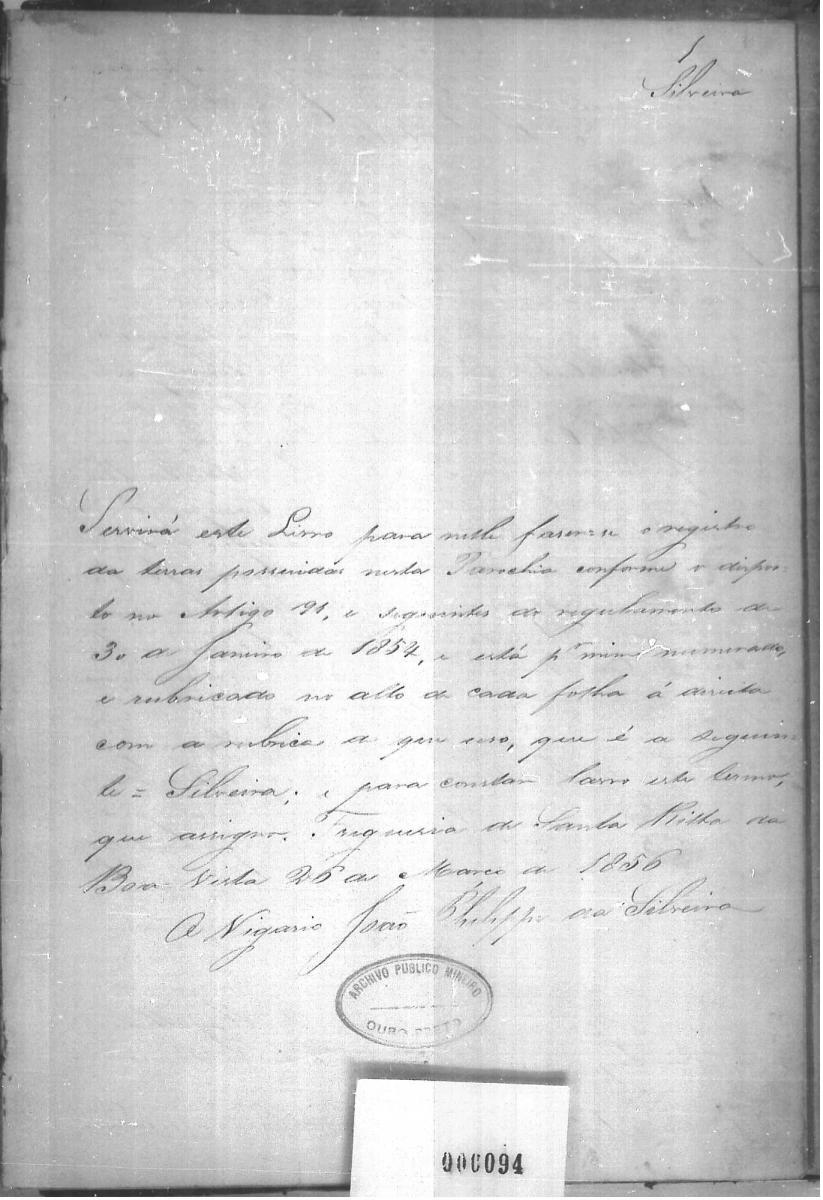 1
Silveira
Servirá este Livro para nelle fazer-se o registro
da terras possuidas nesta Parochia conforme o dispos-
to no Artigo 91, e seguintes do regulamento de
30 de Janeiro de 1854, e está pr mim numerado,
e rubricado no alto de cada folha á direita
com a rubrica de que uso, que é a seguin-
te = Silveira; e para constar lavro este termo,
que assigno. Freguesia de Santa Ritta da
Boa-Vista 26 de Março de 1856
O Vigario João Philippe da Silveira
ARCHIVO PUBLICO MINEIRO
OURO PRETO
000094